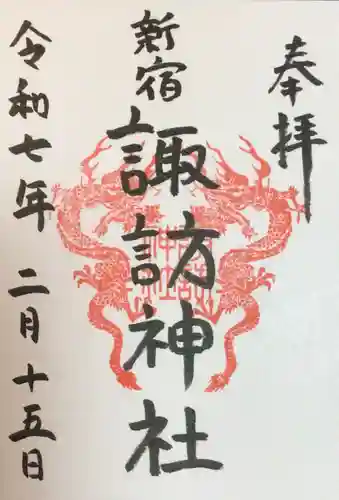 奉拝
新宿
諏訪神社
令和七年 二月十五日